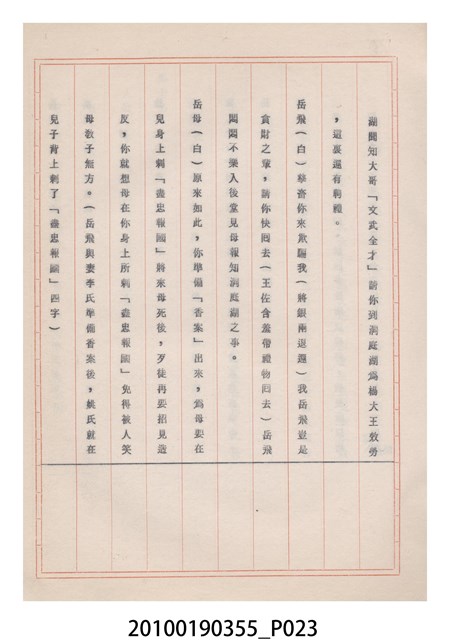 湖聞知大哥「文武全才」請你到洞庭湖為楊大王效勞
，這裏還有利禮。
岳飛（白）畢斎你來欺騙我（將銀兩退還）我岳飛豈是
貪財之輩，請你快囘去（王佐含羞帶禮物囘去）岳飛
悶悶不樂入後堂見母報知洞庭湖之事。
岳母（白）原來如此，你準備「香案」出來，為母要在
兒身上刺「盡忠報國」將來母死後，歹徒再要招見造
反，你就想母在你身上所刺「盡忠報國」免得被人笑
母敎子無方。（岳飛與妻李氏準備香案後，姚氏就在
兒子背上刺了「盡忠報國」四字）
20100190355_P023